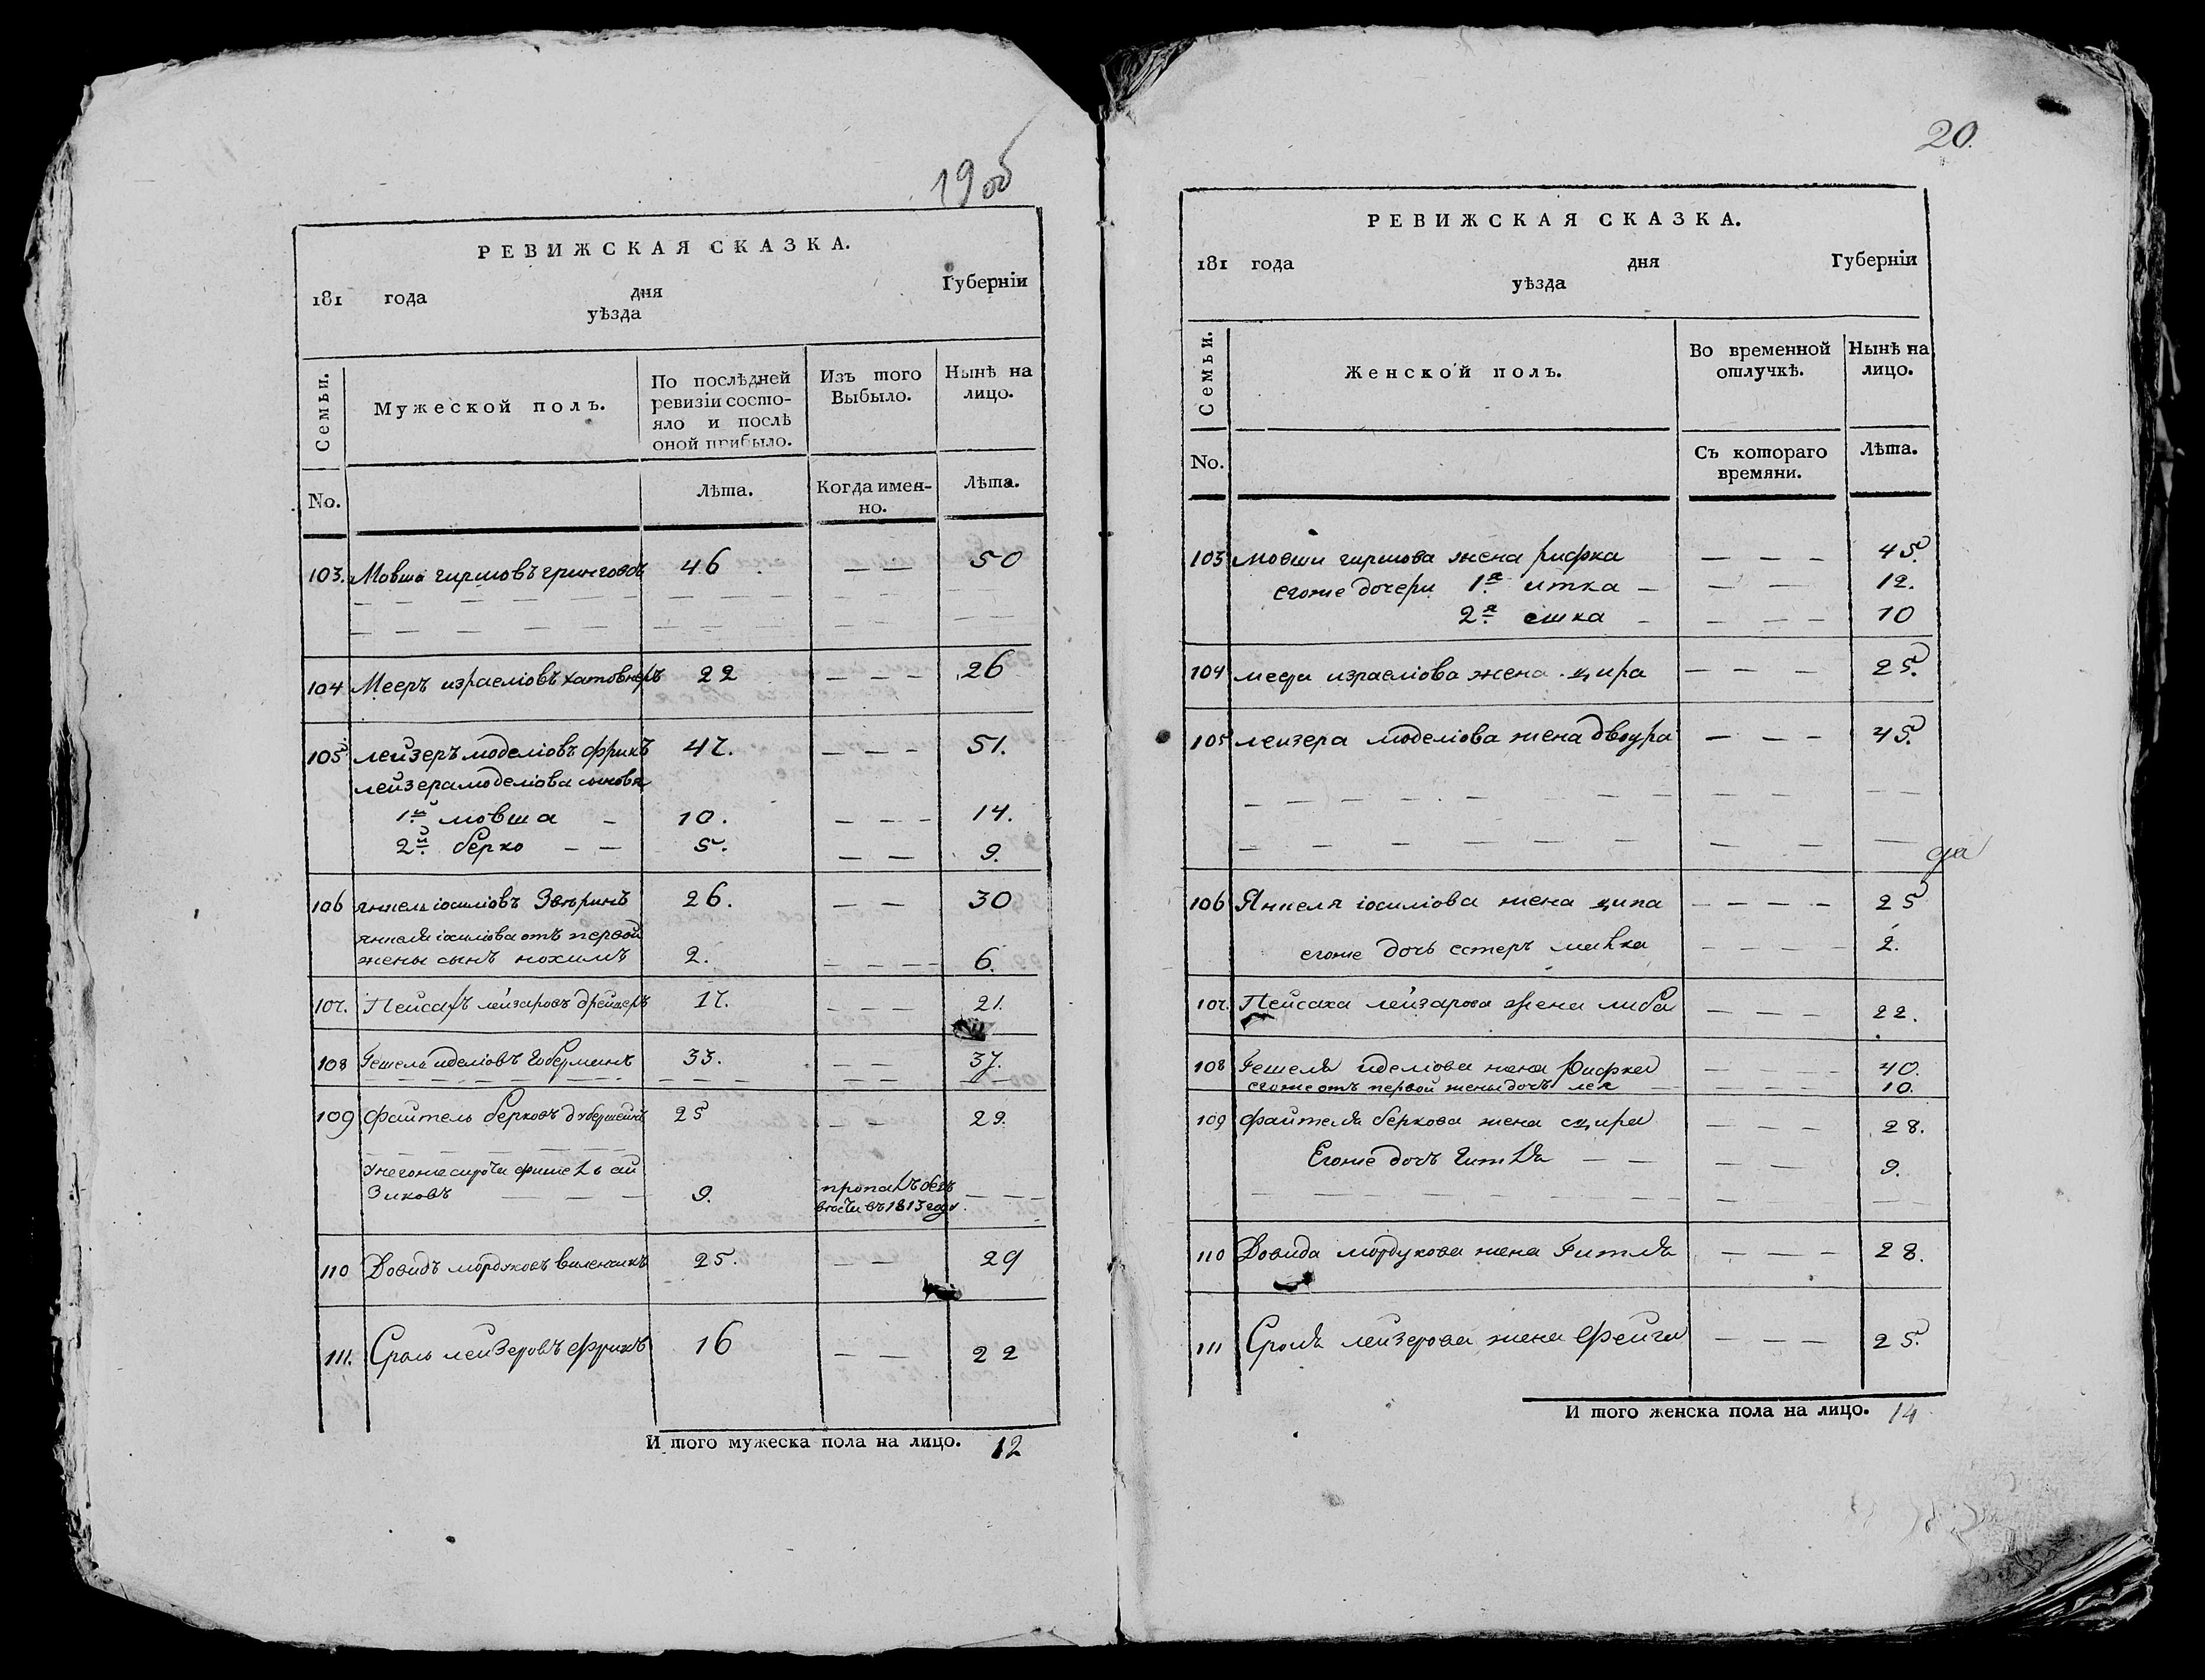 19 об
РЕВИЖСКАЯ СКАЗКА.
181 года дня Губерніи
уѣзда
Семьи.
Мужеской полъ.
По послѣдней ревизіи состояло и послѣ оной прибыло.
Изъ того Выбыло.
Нынѣ на лицо.
No.
Лѣта.
Когда именно.
Лѣта.
103. Мовша гиршовъ 46 — — 50
104 Мееръ израеліовъ хатовнеръ 22 — — — 26
105. лейзеръ юделіовъ фрикъ 47. — — — 51.
лейзера юделіова сыновя
1й мовша — 10. — — — 14.
2й берко — — 5. — — 9.
106 янкель іосиліовъ Звѣринъ 26. — — 30
янкеля іосиліова отъ первой
жены сынъ нохимъ 2. — — — — 6.
107. Пейсахъ лейзаровъ 17. — — — 21.
108 Гешель иделіовъ Гоберманъ 33. — — 37.
109 Файтель берковъ 25 — — 29.
У негоже сирота фишель ай
зиковъ — — — 9. пропалъ безъ — — —
вѣсти въ 1813 году
110 Довидъ мордуховъ виленчикъ 25. — — 29
111. Сроль лейзеровъ Фрикъ 16 — — 22
И того мужеска пола на лицо. 12
20.
РЕВИЖСКАЯ СКАЗКА.
181 года дня Губерніи
уѣзда
Семьи.
Женской полъ.
Во временной отлучкѣ.
Нынѣ на лицо.
No.
Съ котораго времяни.
Лѣта.
103 мовши гиршова жена рифка — — — 45.
егоже дочери 1я итка — — — — 12.
2я ешка — — — — 10
104 меера израеліова жена цира — — — 25.
105 леизера юделіова жена двоура — — — 45.
106 Янкеля іосиліова жена ципа — — — — 25
егоже дочь естеръ малка — — — — 2.
107. Пейсаха лейзарова жена либа — — — 22.
108 Гешеля иделіова жена рифка — — — 40.
егоже отъ первой жены дочъ лея — — — 10.
109 файтеля беркова жена сцира — — — 28.
Егоже дочъ Гитля — — — — 9.
110 Довида мордухова жена Гитля — — — 28.
111 Сроля лейзерова жена Фейга — — — 25.
И того женска пола на лицо. 14